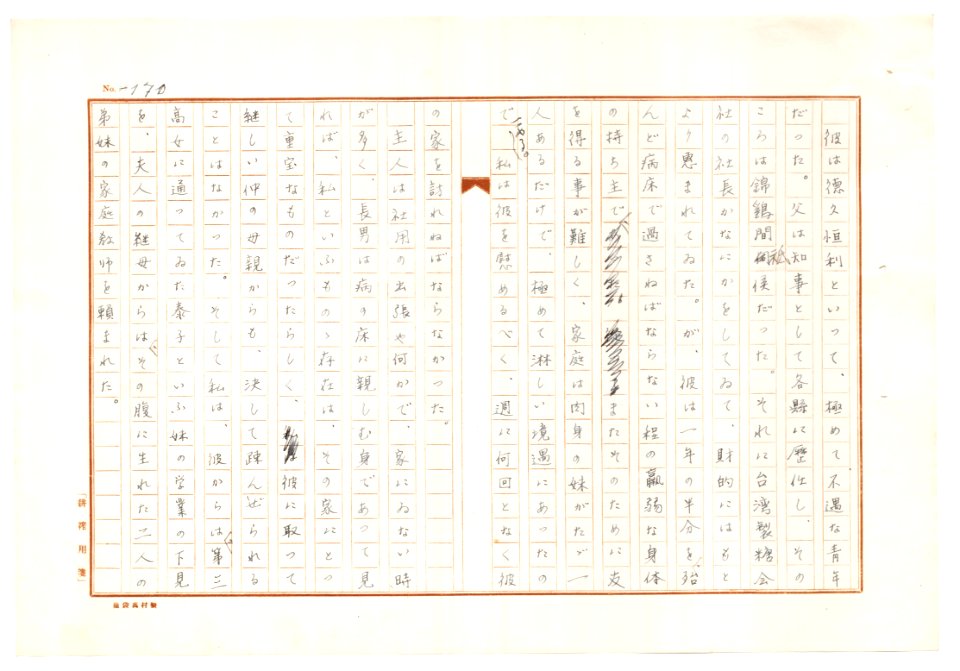 No. 170
彼は徳久恒利といって、極めて不遇な青年
だった。父は知事として各縣に歴任し、その
ころは錦鷄間祗候だった。それに台湾製糖会
社の社長かなにかをしてゐて、財的にはもと
より惠まれてゐた。が、彼は一年の半分を殆
んど病床で過さねばならない程の羸弱な身体
の持ち主で、またそのために友
を得る事が難しく、家庭は肉身の妹がたゞ一
人あるだけで、極めて淋しい境遇にあつたの
である。で、私は彼を慰めるべく、週に何回となく彼
の家を訪れねばならなかつた。
主人は社用の出張や何かで、家にゐない時
が多く、長男は病の床に親しむ身であつて見
れば、私といふものゝ存在は、その家にとっ
て重宝なものだったらしく、彼に取つて
継しい仲の母親からも、決して疎んぜられる
ことはなかつた。そして私は、彼からは第三
高女に通つてゐた泰子といふ妹の学業の下見
を、夫人の継母からはその腹に生れた二人の
弟妹の家庭教師を頼まれた。